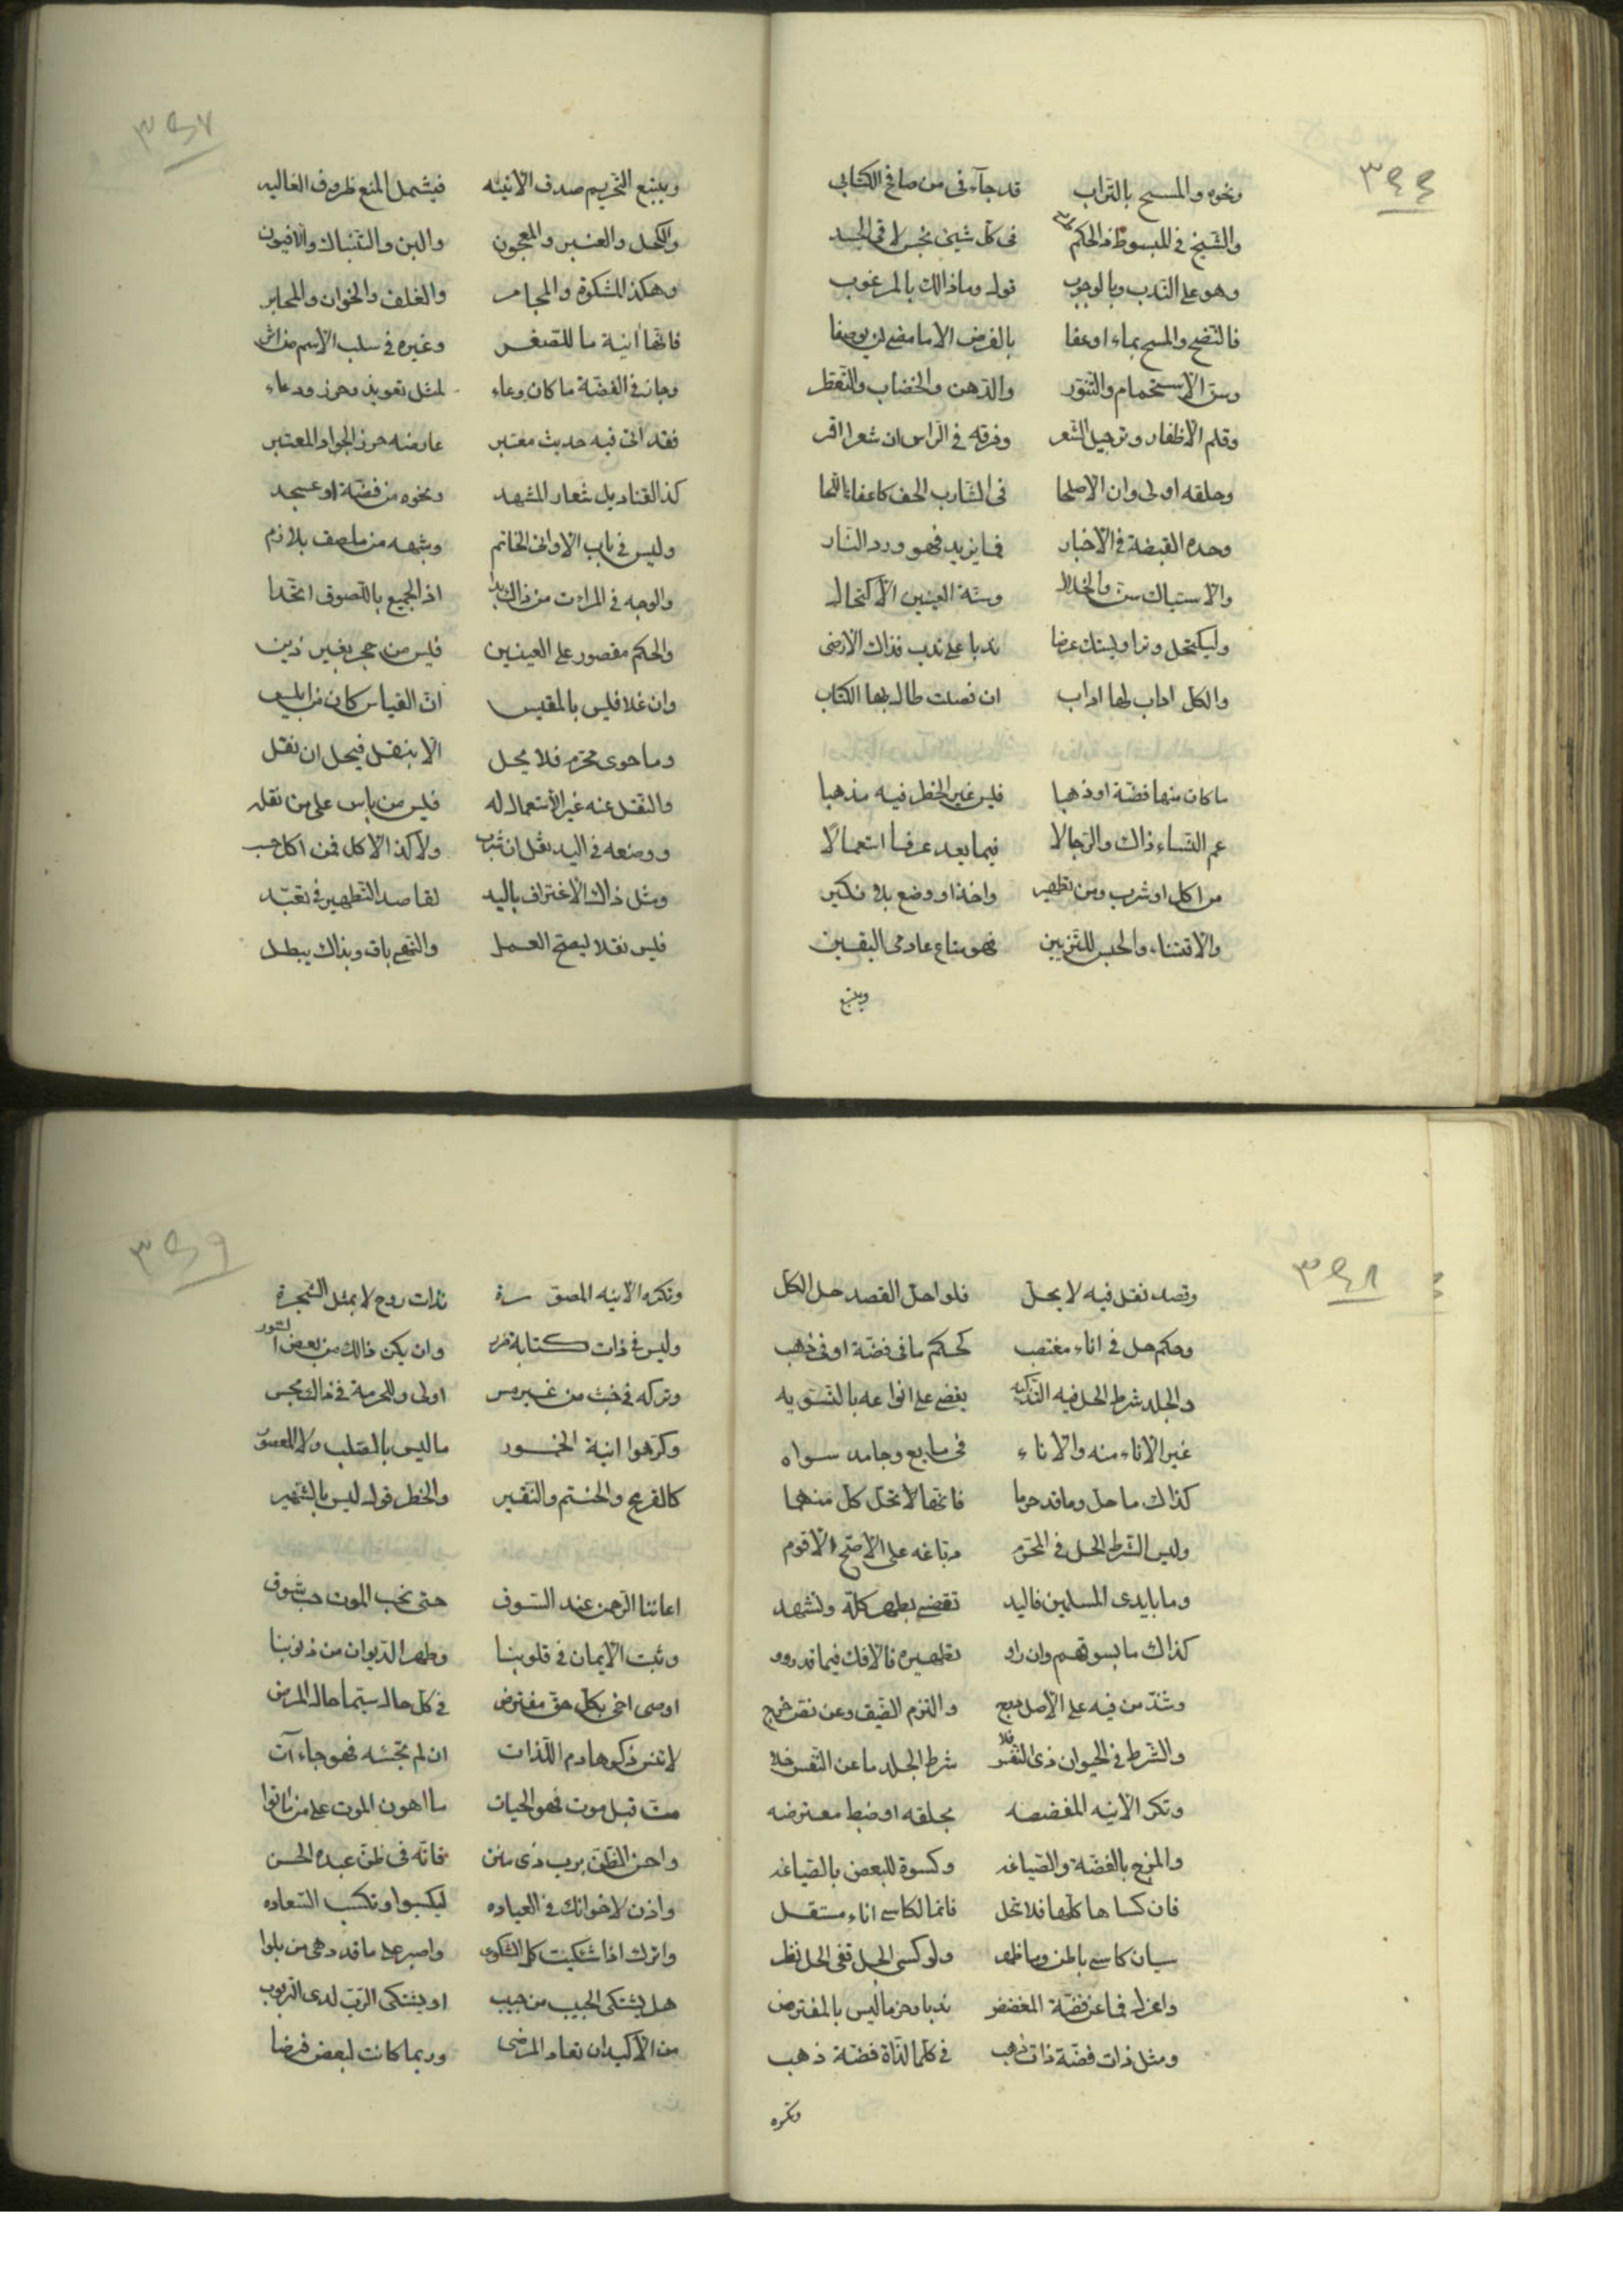 ٣٤٤
ونحوه والمسح بالتراب قد جآء فى من صافح الكتابى
والشيخ فى المبسوط ذا الحكم فى كل شيئ نجس لاقى الجسد
وهو على الندب وبالوجوب قوله وماذالك بالمرغوب
فالنضح والمسح بماء اوعفا بالفرض الا مامضى لن يوصفا
وسن الاستحمام والتنور والدهن والخضاب والتعطر
وقلم الاظفار وترجيل الشعر وفرقه فى الراس ان شعرا قر
وحلقه اولى وان الاصلحا فى الشارب الحف كاعفاء اللحا
وحده القبضة فى الاخبار فما يزيد فهو ورد النار
والاستياك سن والخلال وسنة العينين الاكتحال
وليكتحل وترا وليستك عرضا ندبا على ندب فذاك الارضى
والكل اداب لها اداب ان فصلت طال بها الكتاب
ما كان منها فضة او ذهبا فليس غير الخطر فيه مذهبا
عم النساء ذاك والرجالا فيما يعد عرفا استعمالا
من اكل او شرب ومن تطهير واخذ او وضع بلا نكير
والاقتناء والحبس للتزيين فهو متاع عادمى اليقين
ويتبع
٣٤٧
ويتبع التحريم صدق الانيه فيشمل المنع ظروف الغاليه
والكحل والعنبر والمعجون والبن والتنباك والافيون
وهكذا المشكوة والمجامر والغلف والخوان والمحابر
فانها انية ما للصغر وغيره فى سلب الاسم من اثر
وجاز فى الفضة ما كان وعاء لمثل تعويذ وحرز ودعاء
فقد اتى فيه حديث معتبر عارضه حرز الجواد المعتبر
كذا القناديل شعار المشهد ونحوه من فضة او عسجد
وليس فى باب الاوانى الخاتم وشبهه من ملصق بلازم
والوجه فى المراءت من ذاك بدا اذ الجميع باللصوق اتحدا
والحكم مقصور على العينين فليس من حجر بغير ذين
وان غلا فليس بالمقيس ان القياس كان من ابليس
وما حوى محترم فلا يحل الا بنقل فيحل ان نقل
والنقل عنه غير الاستعمال له فليس من باس على من نقله
ووضعه فى اليد نقل ان شرب ولا كذا الاكل فمن اكل حسب
ومثل ذاك الاغتراف باليد لقاصد التطهير فى تعبد
فليس نقلا ليصح العمل والنهى باق وبذاك يبطل
٣٤٨
وقصد نقل فيه لا يحل فلو احل القصد حل الكل
وحكم حل فى اناء مغتصب كحكم ما فى فضة او فى ذهب
والجلد شرط الحل فيه التذكيه يقضى على انواعه بالتسويه
غير الاناء منه والاناء فى مايع وجامد سواء
كذاك ما حل وما قد حرما فانها لا تحل كل منهما
وليس الشرط الحل فى المحترم دباغه على الاصح الاقوم
وما بايدى المسلمين فاليد تقضى بطهر كله وتشهد
كذاك ما بسوقهم وان راو تطهيره فالافك فيما قد روو
وشذ من فيه على الاصل والتزم الضيق وعن نفى حرج
والشرط فى الحيوان ذى النفس فلا شرط الجلد ما عن النفس خلا
وتكره الانيه المفضضه بحلقه او ضبط معترضه
والمزج بالفضة والصياغه وكسوة للبعض بالصياغه
فان كساها كلها فلا تحل فانما لكاسى اناء مستقل
سيان كاسى باطن وما ظهر ولو كسى الجل ففى الحل نظر
واعزل فما عن فضة المفضض ندبا وحز ما ليس بالمفترض
ومثل ذات فضة ذات ذهب فى كلما لذاة فضة ذهب
وتكره
٣٤٩
وتكره الانيه المصورة بذات روح لا بمثل الشجرة
وليس فى ذات كتابة ضرر وان يكن ذالك من بعض السور
وتركه فى خبث من غير مس اولى وللحرمة فى ذالك مجس
وكرهوا انية الخمور ما ليس بالصلب ولا المعصور
كالقرع والحنتم والنقير والخطر قول ليس بالشهير
اعاننا الرحمن عند السوق حتى نحب الموت حب شوق
وثبت الايمان فى قلوبنا وطهر الديوان من ذنوبنا
اوصى اخى بكل حق مفترض فى كل حال سيما حال المرض
لا تنس ذكر هادم اللذات ان لم تجئه فهو جاء آت
مت قبل موت فهو الحيات ما اهون الموت على من ماتوا
واحسن الظن برب ذى منن فانه فى ظن عبده الحسن
واذن لاخوانك فى العياده ليكسبوا وتكسب السعاده
واترك اذا شكيت كل الشكوى واصبر على ما قد دهى من بلوا
هل يشتكى الحبيب من حبيب او يشتكى الرب لدى المربوب
من الاكيد ان تعاد المرضى وربما كانت لبعض فرضا